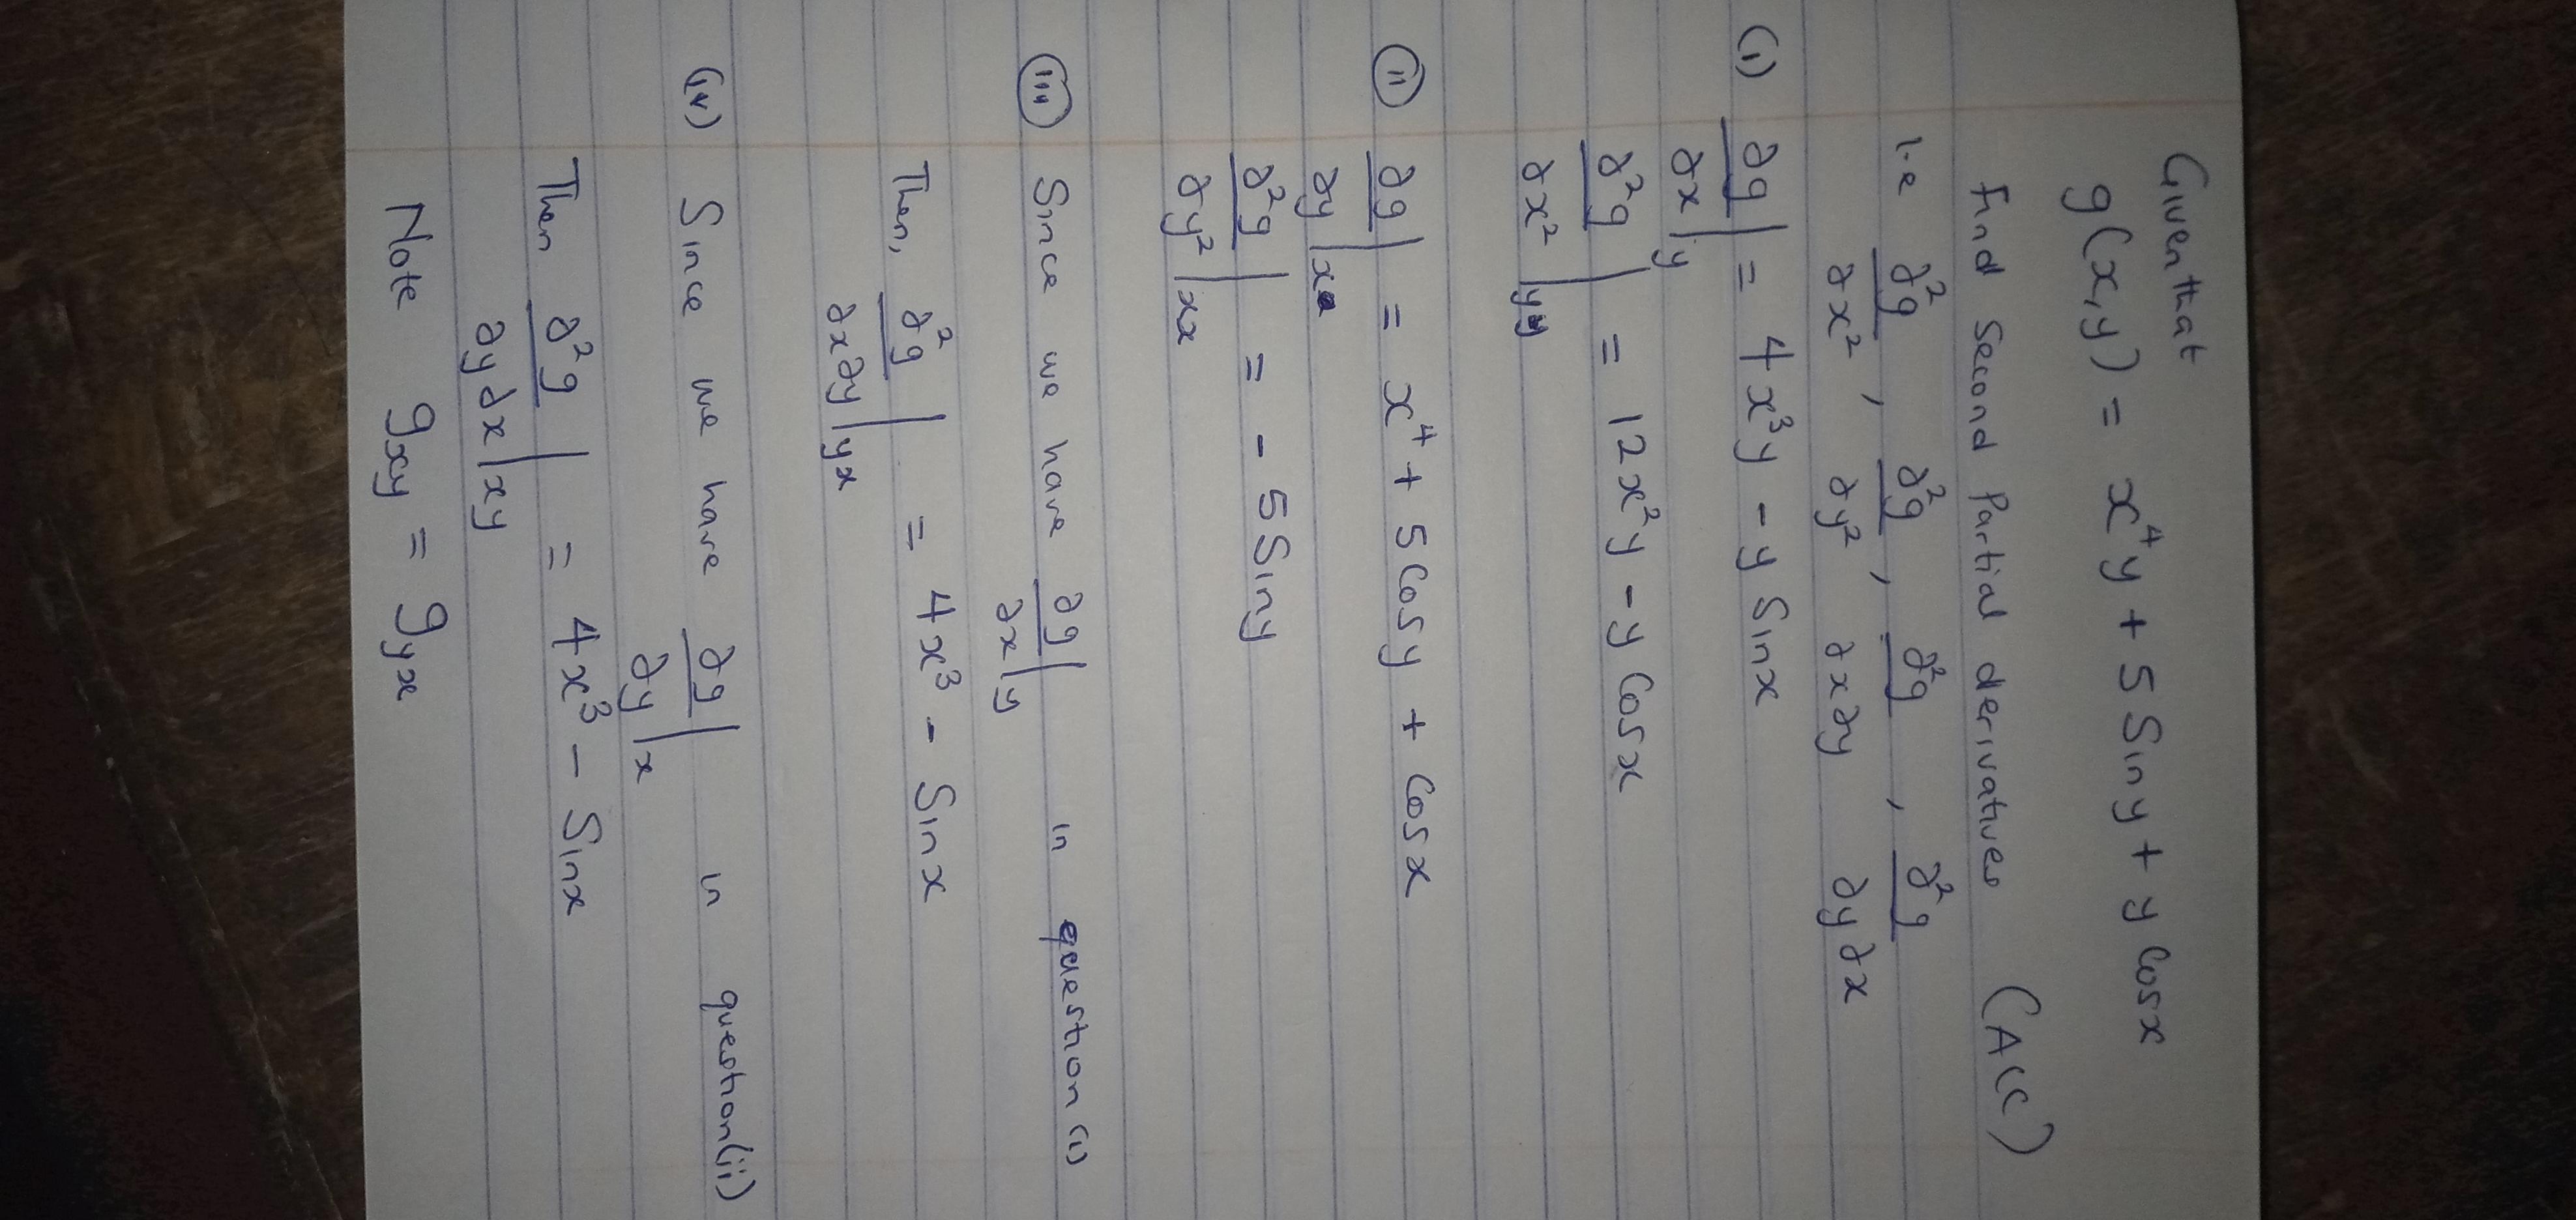 Given that
g(x,y) = x⁴y + 5 Siny + y Cosx
Find Second Partial derivatives (All)
i.e ∂²g/∂x² , ∂²g/∂y² , ∂²g/∂x∂y , ∂²g/∂y∂x
(i) ∂g/∂x|y = 4x³y - y Sinx
∂²g/∂x²|yy = 12x²y - y Cosx
(ii) ∂g/∂y|x = x⁴ + 5 Cosy + Cosx
∂²g/∂y²|xx = - 5 Siny
(iii) Since we have ∂g/∂x|y in question (i)
Then, ∂²g/∂x∂y|yx = 4x³ - Sinx
(iv) Since we have ∂g/∂y|x in question (ii)
Then ∂²g/∂y∂x|xy = 4x³ - Sinx
Note gxy = gyx